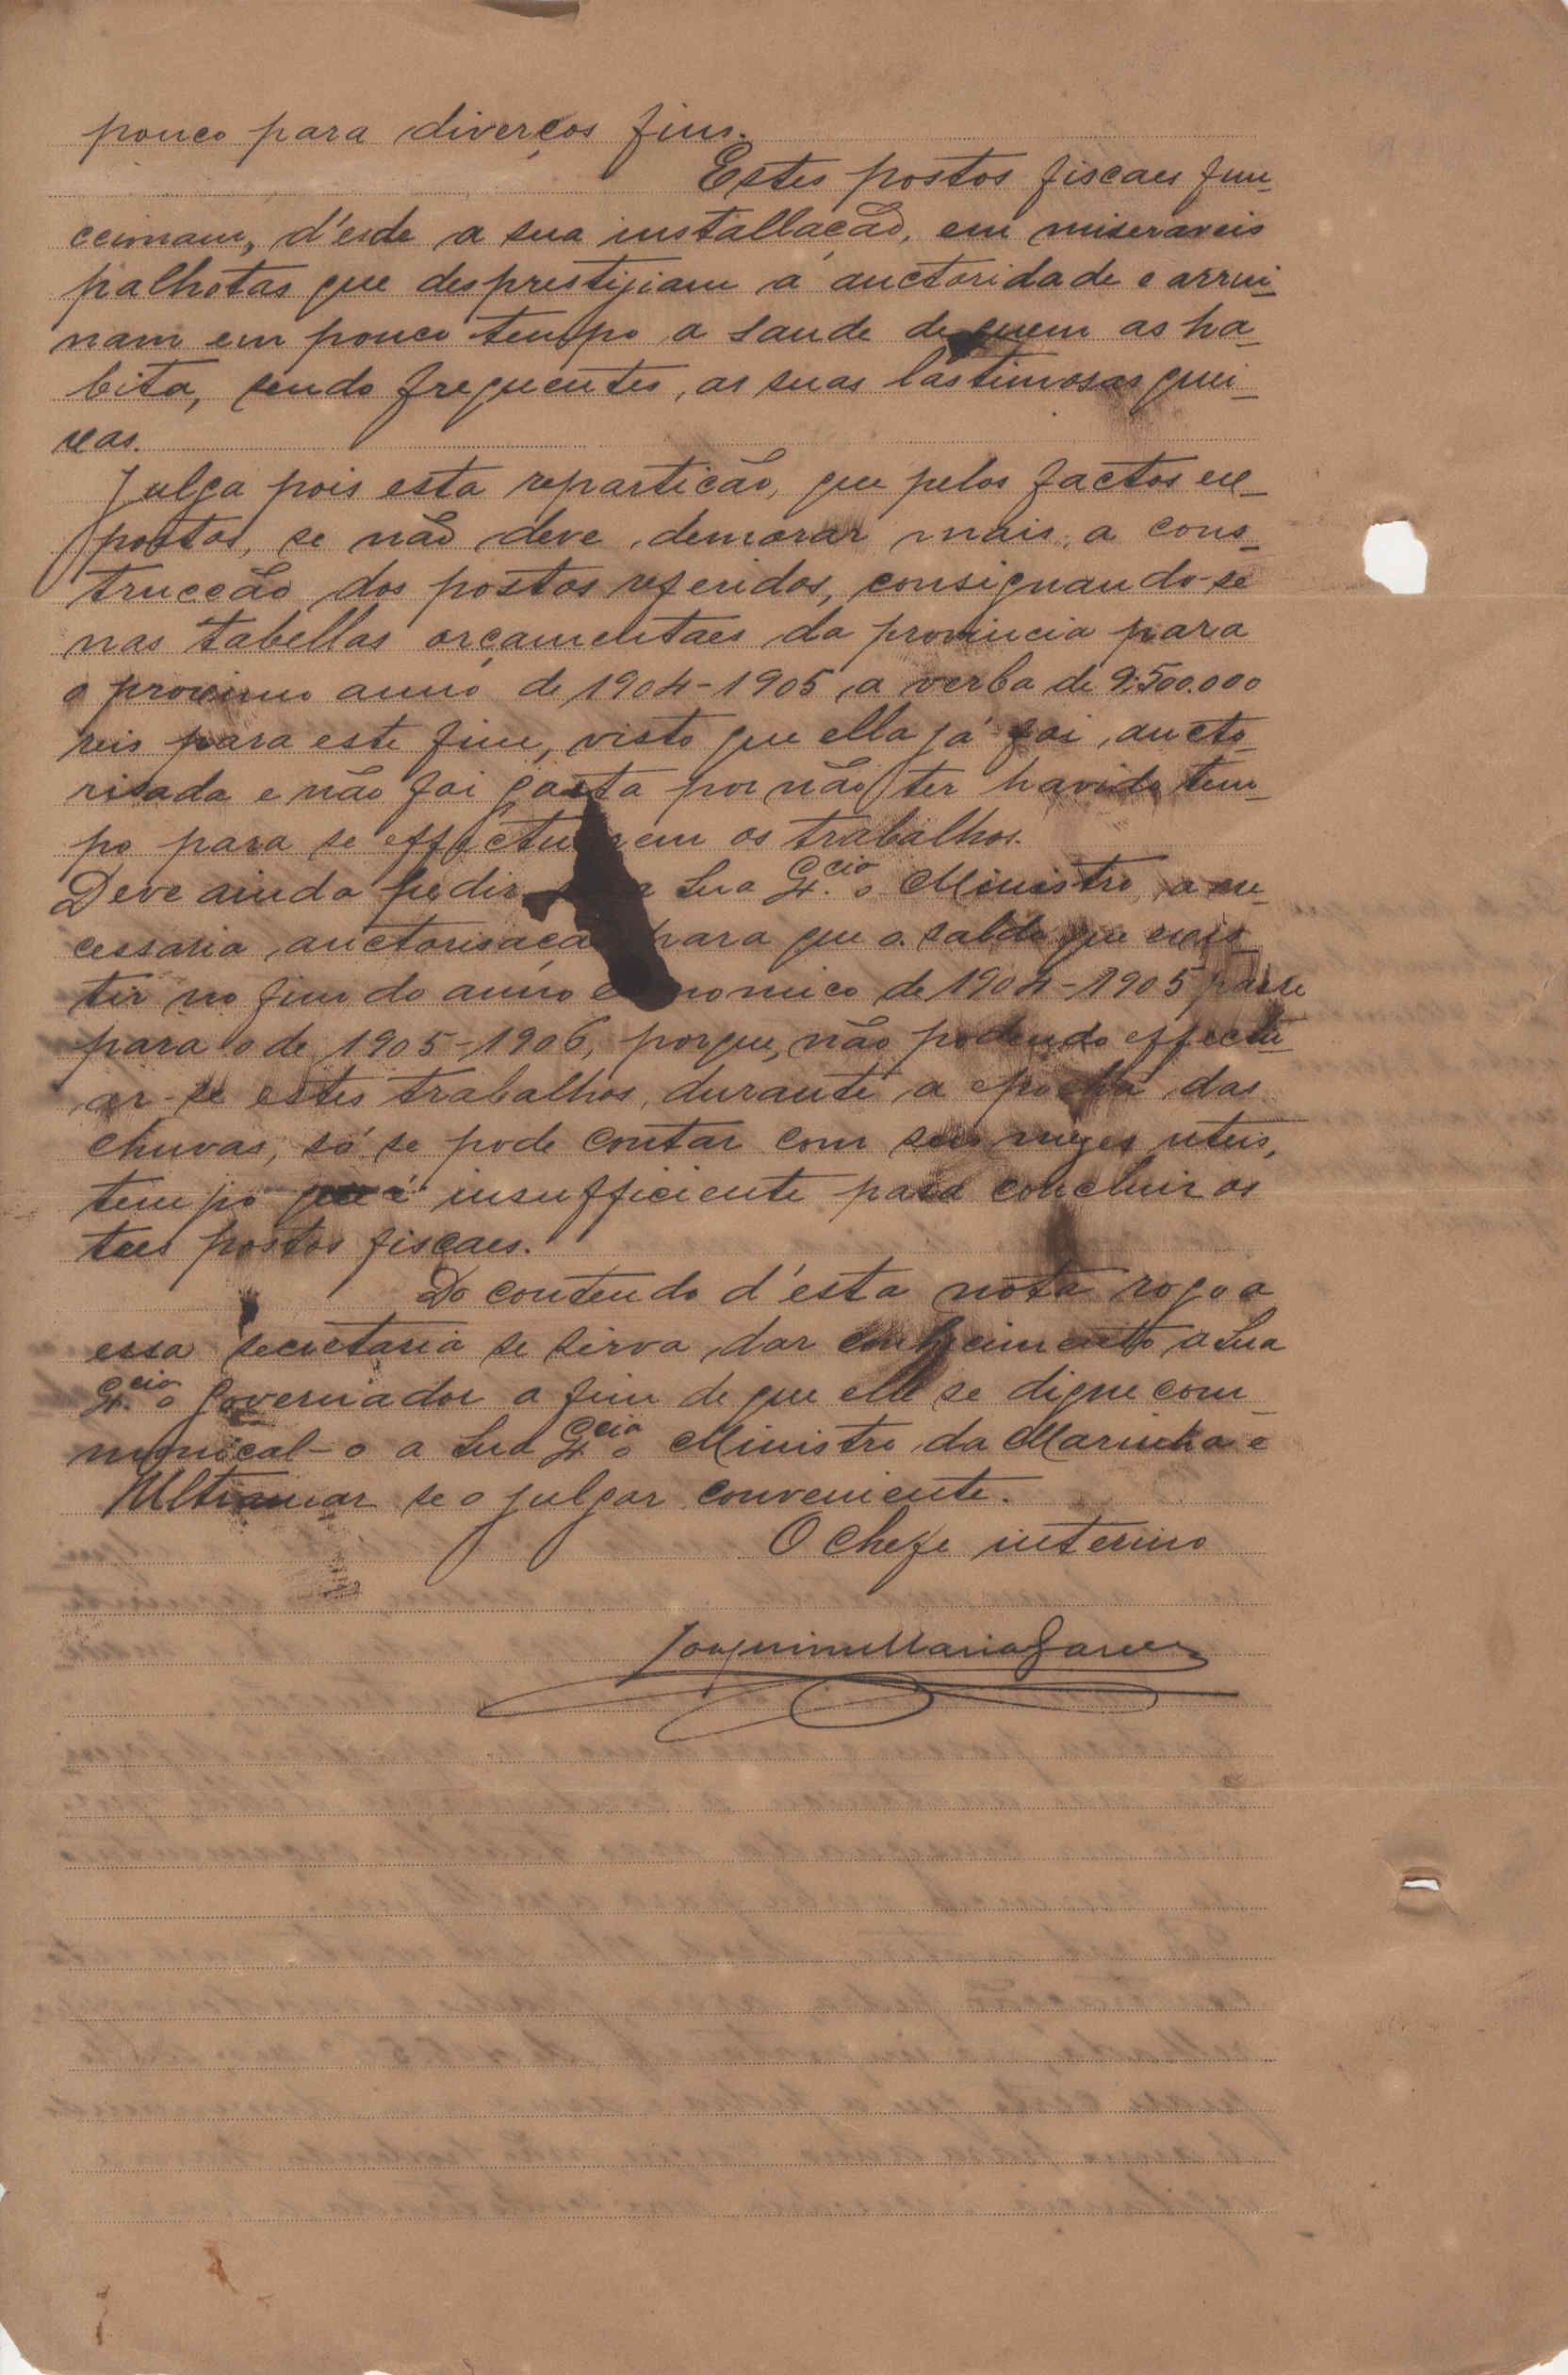 pouco para diverços fins.
Estes postos fiscaes fun-
ccionam, d'esde a sua installação, em miseraveis
palhotas que desprestijiam a auctoridade e arrui-
nam em pouco tempo a saude de quem as ha-
bita, sendo frequentes, as suas lastimosas quei-
xas.
Julga pois esta repartição, que pelos factos ex-
postos, se não deve demorar mais, a cons-
trucção dos postos referidos, consignando-se
nas tabellas orçamentaes da provincia para
o proximo anno de 1904-1905 a verba de 9:500.000
reis para este fim, visto que ella já foi aucto-
risada e não foi gasta por não ter havido tem-
po para se effectuarem os trabalhos.
Deve ainda pedir a Sua Ex.cia o Ministro, a ne-
cessaria auctorisação para que o saldo que exis-
tir no fim do anno economico de 1904-1905 passe
para o de 1905-1906, porque, não podendo effectu-
ar-se estes trabalhos, durante a epocha das
chuvas, só se pode contar com seis mezes uteis,
tempo que é insufficiente para concluir os
tres postos fiscaes.
Do contendo d'esta nota rogo a
essa secretaria se sirva dar conhecimento a Sua
Ex.cia o Governador a fim de que elle se digne com-
munical-o a Sua Ex.cia o Ministro da Marinha e
Ultramar se o julgar conveniente.
O Chefe interino
Joaquim Maria